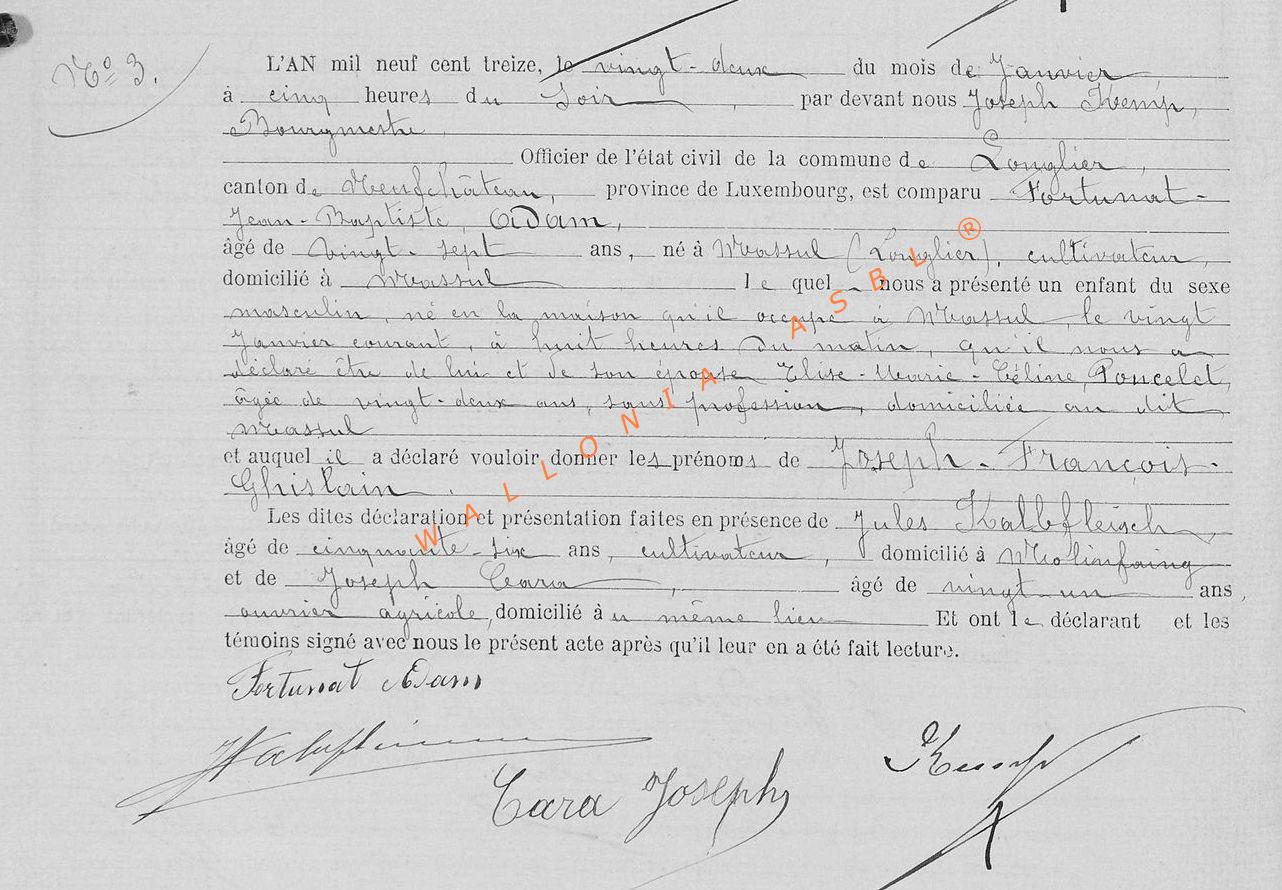 N° 3.
L'AN mil neuf cent treize, le vingt-deux du mois de Janvier,
à cinq heures du soir, par devant nous Joseph Kemp,
Bourgmestre
Officier de l'état civil de la commune de Longlier,
canton de Neufchâteau, province de Luxembourg, est comparu Fortunat-
Jean-Baptiste, Adam,
âgé de vingt-sept ans, né à Massul (Longlier), cultivateur,
domicilié à Massul lequel nous a présenté un enfant du sexe
masculin, né en la maison qu'il occupe à Massul, le vingt
Janvier courant, à huit heures du matin, qu'il nous a
déclaré être de lui et de son épouse Elise-Marie-Céline, Poncelet,
âgée de vingt-deux ans, sans profession, domiciliée au dit
Massul
et auquel il a déclaré vouloir donner les prénoms de Joseph-François-
Ghislain.
Les dites déclaration et présentation faites en présence de Jules Kalbfleisch,
âgé de cinquante-six ans, cultivateur, domicilié à Molinfaing
et de Joseph Cara, âgé de vingt-un ans,
ouvrier agricole, domicilié au même lieu Et ont le déclarant et les
témoins signé avec nous le présent acte après qu'il leur en a été fait lecture.
Fortunat Adam
Cara Joseph
Kemp
WALLONIA ASBL ®